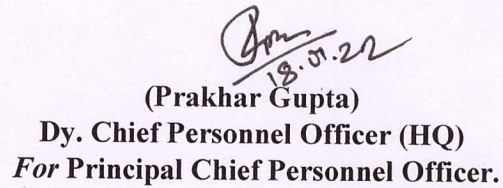 18.01.22
(Prakhar Gupta)
Dy. Chief Personnel Officer (HQ)
For Principal Chief Personnel Officer.